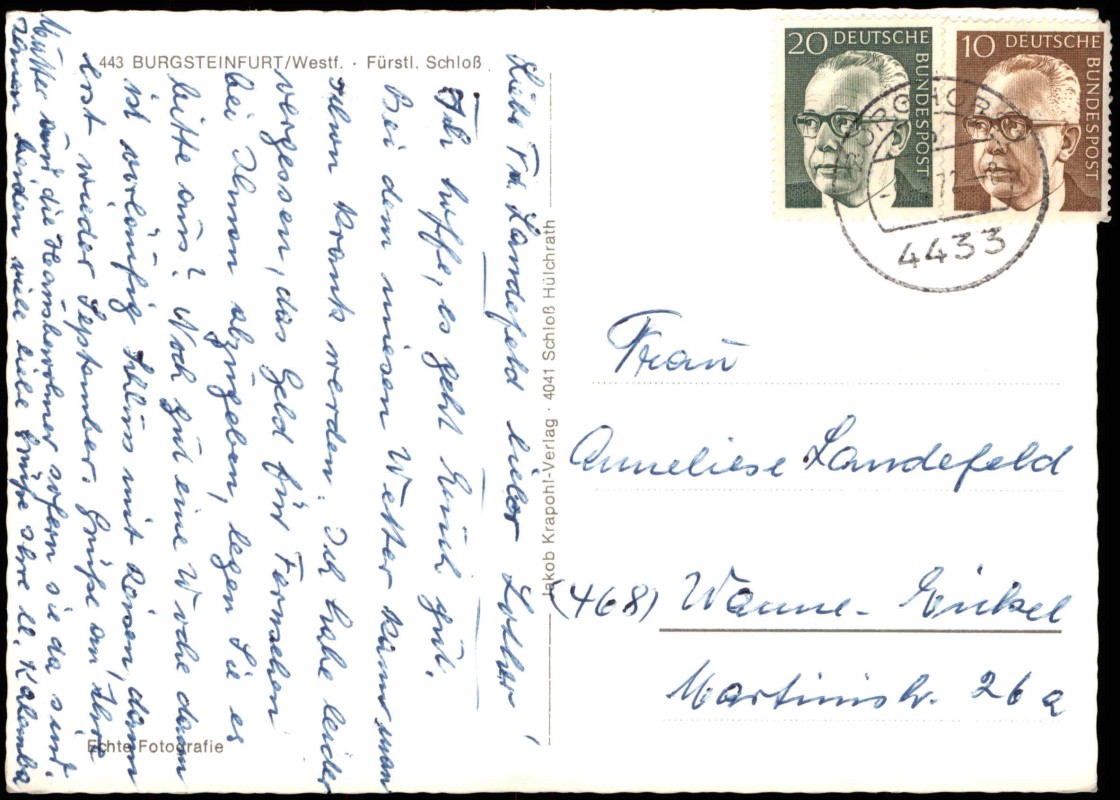 443 BURGSTEINFURT/Westf. · Fürstl. Schloß
Liebe Fr. Landefeld lieber Lothar,
Ich hoffe, es geht Euch gut.
Bei dem miesen Wetter kann man
schon krank werden. Ich habe leider
vergessen, das Geld für Fernsehen
bei Ihnen abzugeben, legen Sie es
bitte aus? Noch gut eine Woche dann
ist vorläufig Schluss mit Reisen, dann
erst wieder September. Grüße an Ihre
Mutter und die Hausbewohner sofern sie da sind.
Ihnen beiden viele liebe Grüße Ihre
Echte Fotografie
Jakob Krapohl-Verlag · 4041 Schloß Hülchrath
20 DEUTSCHE BUNDESPOST
10 DEUTSCHE BUNDESPOST
4433
Frau
Anneliese Landefeld
(468) Wanne-Eickel
Martinistr. 26a